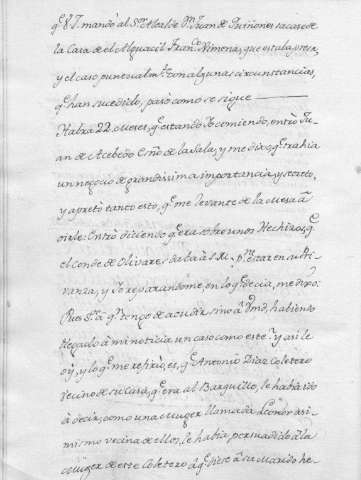 q̃ 8 I. mandó al Sr. Alcalde Dn. Juan de Quiñones sacase de
la Casa de el Alguacil Franco. Ximenez, que estaba presa,
y el caso puntualmte. con algunas circunstancias,
q̃ han sucedido, pasó como se sigue
Habra 22. meses, q̃ estando Yo comiendo, entró Ju-
an de Acebedo Esno. de la Sala, y me dixo, q̃ trahia
un negocio de grandissima importancia, y secreto,
y apretó tanto esto, q̃ me levante de la mesa á
oirle: Entró diciendo q̃ era sobre unos Hechizos, q̃
el Conde de Olivares daba à S.M. pa. estar en su Pri-
vanza, y Yo reparandome en lo q̃ decia, me dixo:
Pues Sr. á qn. tengo de acudir sino á Vmd, habiendo
llegado à mi noticia un caso como este? y asi le
oy, y lo q̃ me refirio, es, q̃ Antonio Diaz Coletero
vecino de su Casa, q̃ era al Barquillo, le habia ido
à decir, como una Muger llamada Leonor asi
mismo vecina de ellos, le habia persuadido à la
Muger de este Coletero á q̃ diese à su Marido he-